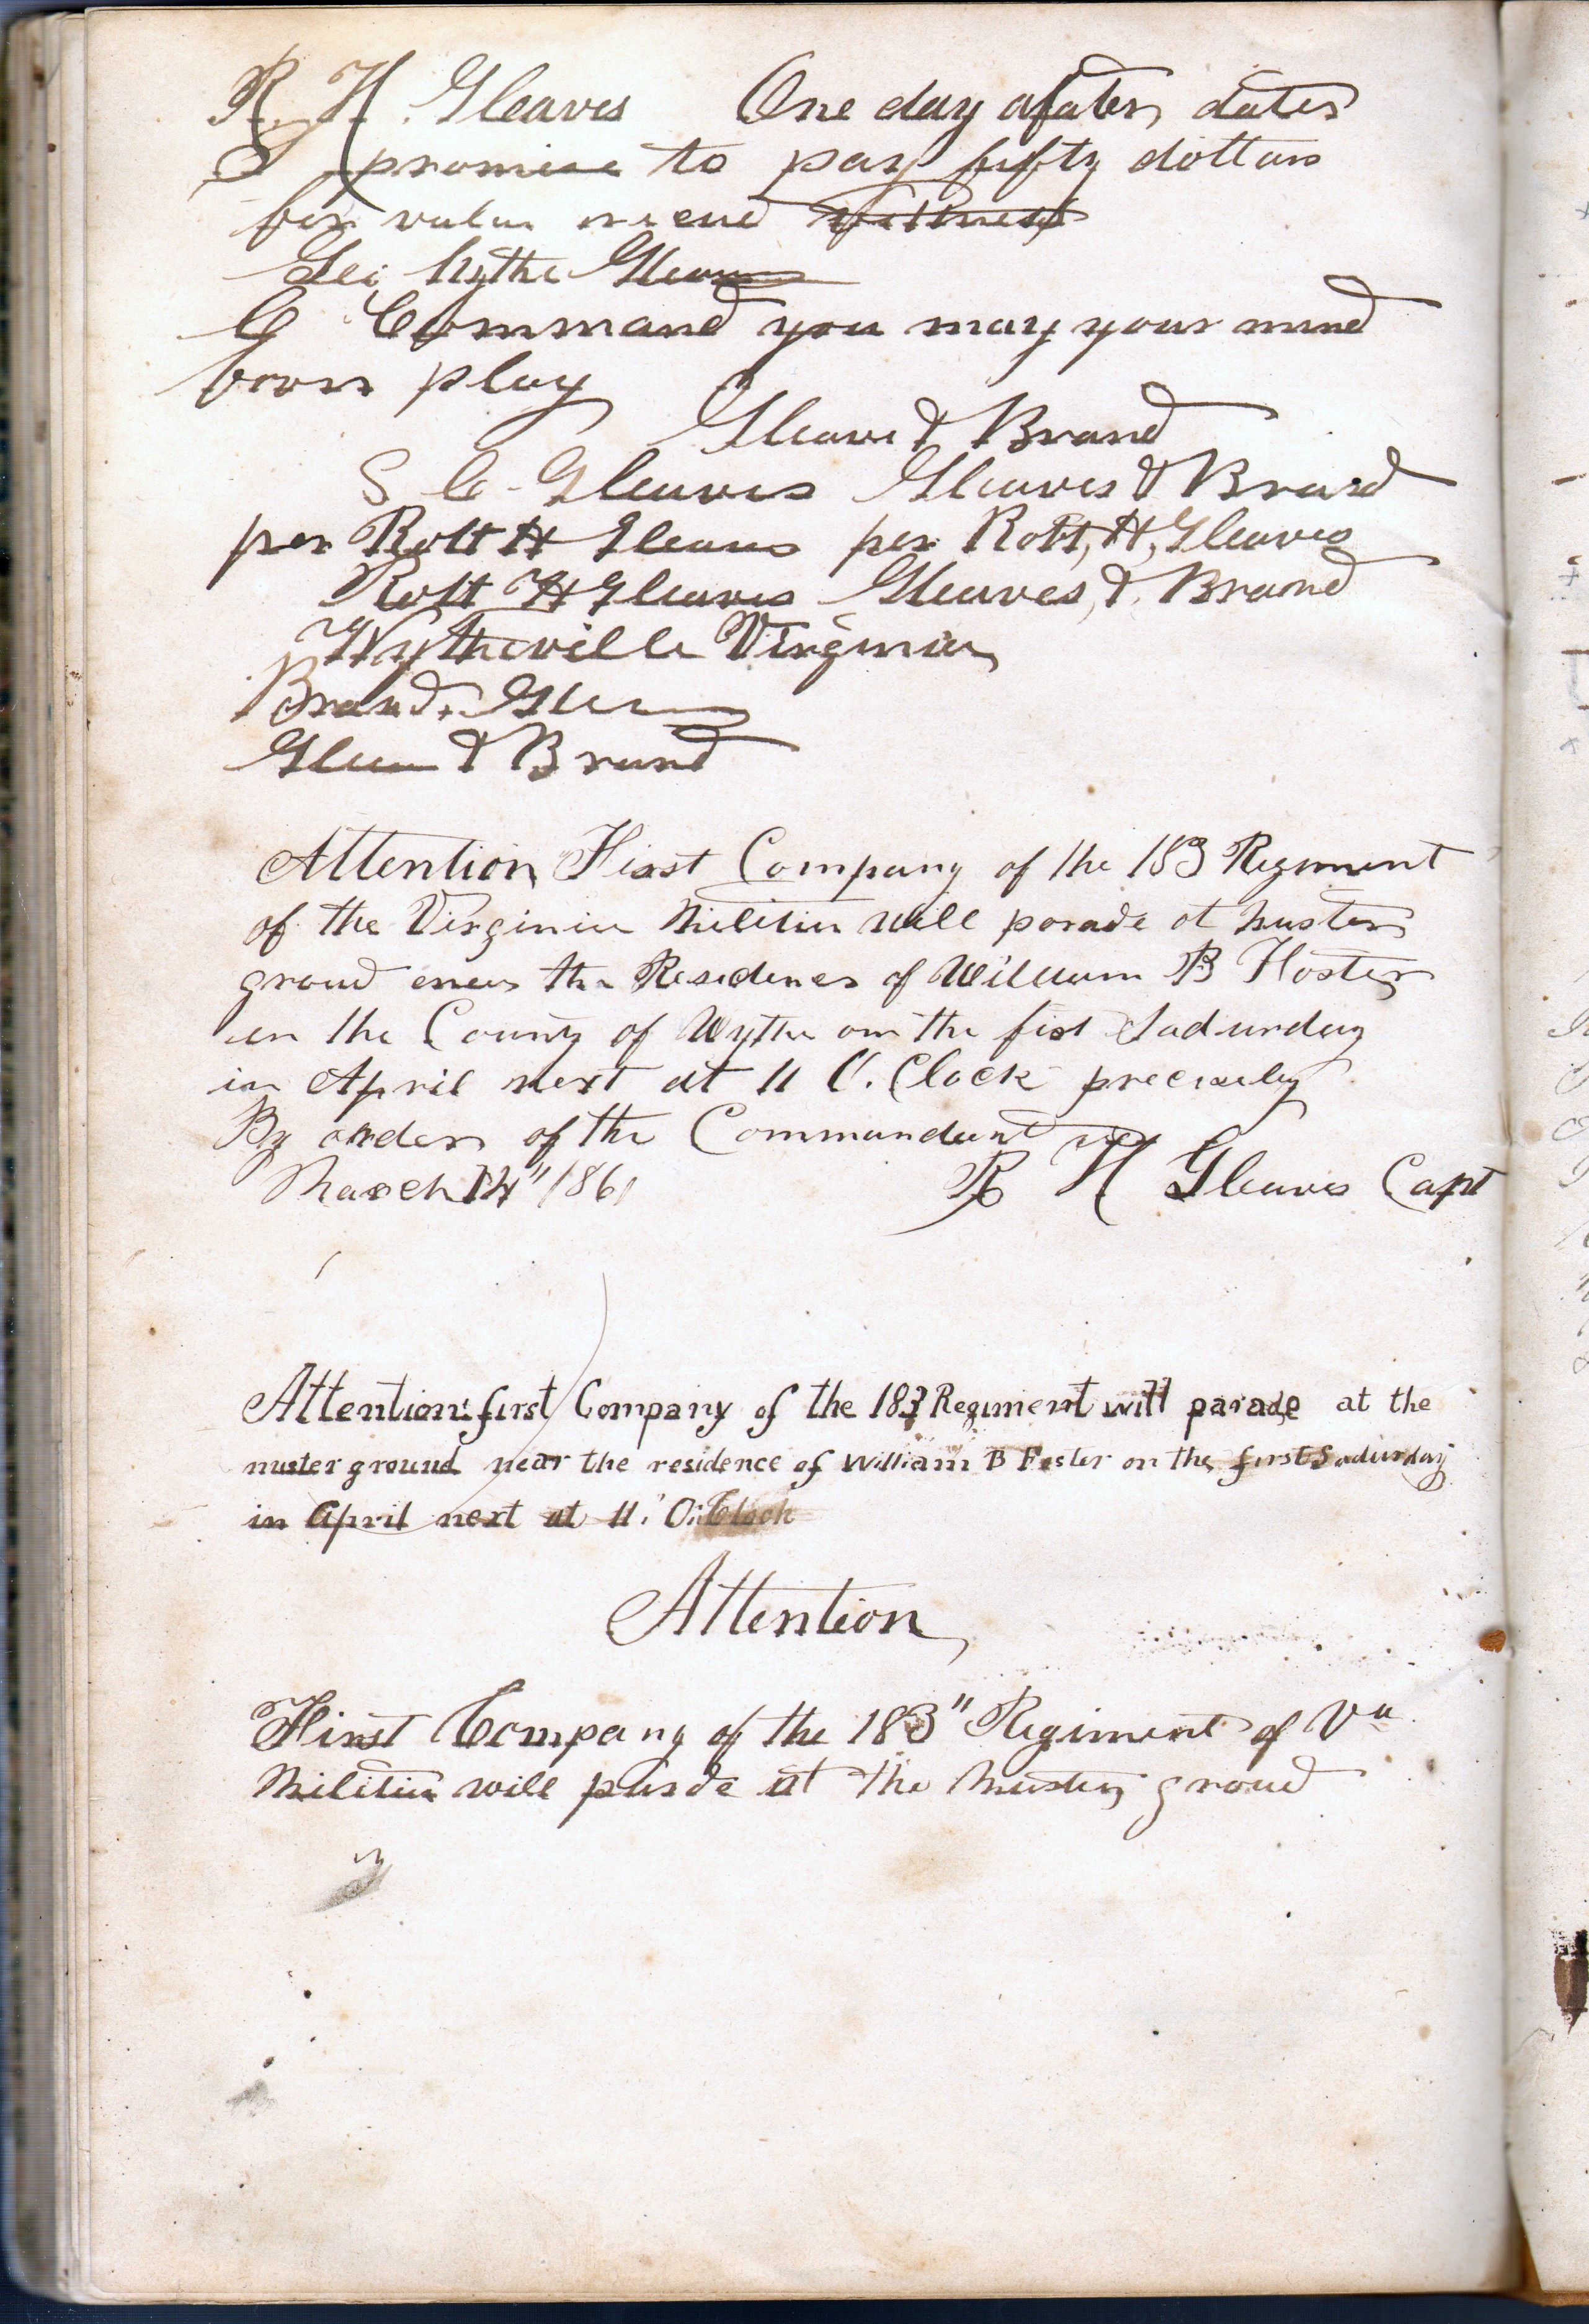 R. H. Gleaves One day afater dates
I promise to pay fifty dollars
for value
Gleaves
C Command you may your mind
from play
Gleave & Brand
S C. Gleaves Gleaves & Brand
per Robt H Gleaves per Robt, H, Gleaves
Robt H Gleaves Gleaves, & Brand
Wytheville Virginia
Brand.
& Brand
Attention First Company of the 183 Regment
of the Virginia Militia will parade at muster
groud the Residences of William B Foster
in the County of Wythe on the fist Sadurday
in April next at 11 O. Clock precisely
By order of the Commandant
March 14" 1861 R H Gleaves Capt
Attention first Company of the 183 Regiment will parade at the
muster ground near the residence of William B Foster on the first Sadurday
in April next at 11. O. Clock
Attention
First Company of the 183" Regiment of Va
Militia will parade at the muster groud